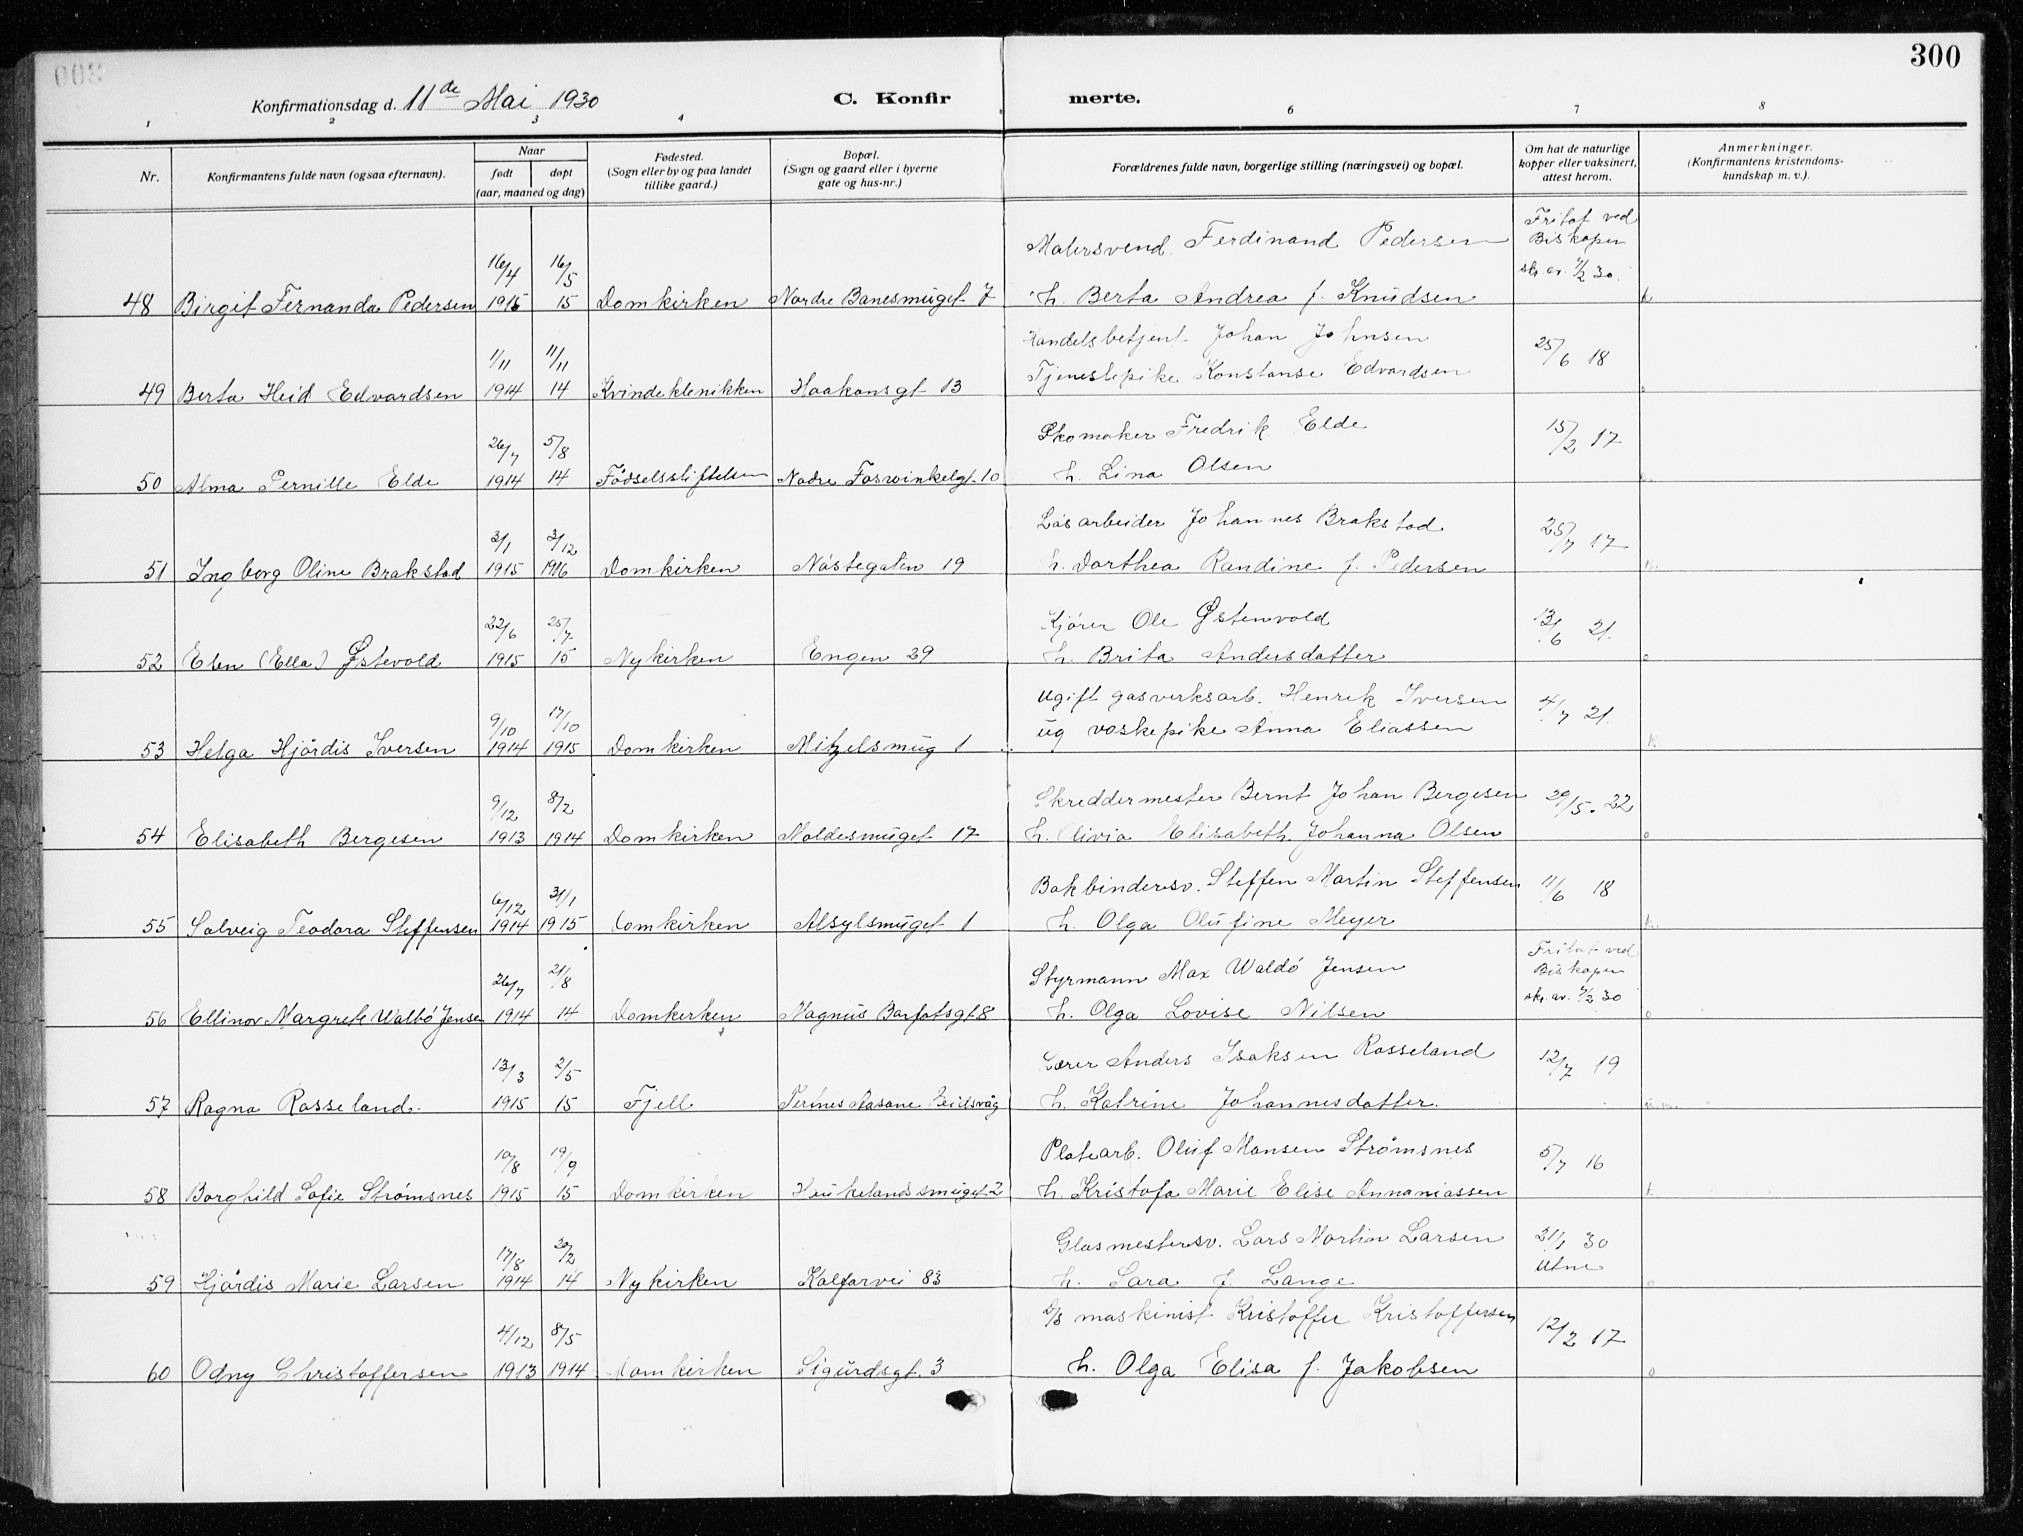 300
Konfirmationsdag d. 11de Mai 1930
C. Konfirmerte.
1 2 3 4 6 7 8
Nr.
Konfirmantens fulde navn (ogsaa efternavn).
Naar
født døpt
(aar, maaned og dag)
Fødested.
(Sogn eller by og paa landet
tillike gaard.)
Bopæl.
(Sogn og gaard eller i byerne
gate og hus-nr.)
Forældrenes fulde navn, borgerlige stilling (næringsvei) og bopæl.
Om hat de naturlige
kopper eller vaksinert,
attest herom.
Anmerkninger.
(Konfirmantens kristendoms-
kundskap m. v.).
Malersvend. Ferdinand Pedersen Fritat ved
Biskopen
16/4 16/5 sk. av. 7/2 30.
48 Birgit Fernanda Pedersen 1915 15 Domkirken Nordre Banesmuget 7 h. Berta Andrea f. Knudsen
1/11 11/11 Handelsbetjent Johan Johnsen 25/6 18
49 Berta Heid Edvardsen 1914 14 Kvindeklenikken Haakonsgt 13 Tjenestepike Konstanse Edvardsen
26/7 5/8 Skomaker Fredrik Elde 15/2 17
50 Alma Pernille Elde 1914 14 Fødselsstiftelsen Nodre Foswinkelgt. 10 h. Lina Olsen
3/1 3/12 Løsarbeider Johannes Brakstad 25/7 17
51 Ingborg Oline Brakstad 1915 1916 Domkirken Nøstegaten 19 h. Dorthea Randine f. Pedersen
22/6 25/7 Kjører Ole Østenvold 13/6 21.
52 Elen (Ella) Østevold 1915 15 Nykirken Engen 29 h. Brita Andersdatter
9/10 17/10 ugift gasverksarb. Henrik Iversen 4/7 21.
53 Helga Hjördis Iversen 1914 1915 Domkirken Mitzelsmug 1 ug vaskepike Anna Eliassen
9/12 8/2 Skreddermester Bernt Johan Bergesen 29/5. 22
54 Elisabeth Bergesen 1913 1914 Domkirken Holdesmuget 17 h. Olivia Elisabeth Johanna Olsen
6/12 31/1 Bokbindersv. Steffen Martin Steffensen 11/6 18
55 Solveig Teodora Steffensen 1914 1915 Domkirken Alsylsmuget 1 h. Olga Olufine Meyer
26/7 21/8 Styrmann Max Waldö Jensen Fritat ved
Biskopen
sk. av. 7/2 30
56 Ellinor Margrete Walbö Jensen 1914 14 Domkirken Magnus Barfotsgt 8 h. Olga Lovise Nilsen
13/3 2/5 Lærer Anders Isaksen Rosseland 12/7 19
57 Ragna Rosseland. 1915 15 Fjell h. Katrine Johannesdatter.
10/8 19/9 Platearb. Oluf Monsen Strømsnes 5/7 16
58 Borghild Sofie Strømsnes 1915 15 Domkirken Haukelandssmuget 2 h. Kristofa Marie Elise Annaniassen
17/8 20/2 Glasmestersv. Lars Martin Larsen 21/1 30
Utne
59 Hjördis Marie Larsen 1914 14 Nykirken Kalfarvei 83 h. Sara f. Lange
4/12 8/5 D/S maskinist Kristoffer Kristoffersen 12/2 17
60 Odny Christoffersen 1913 1914 Domkirken Sigurdsgt. 3 h. Olga Elisa f. Jakobsen